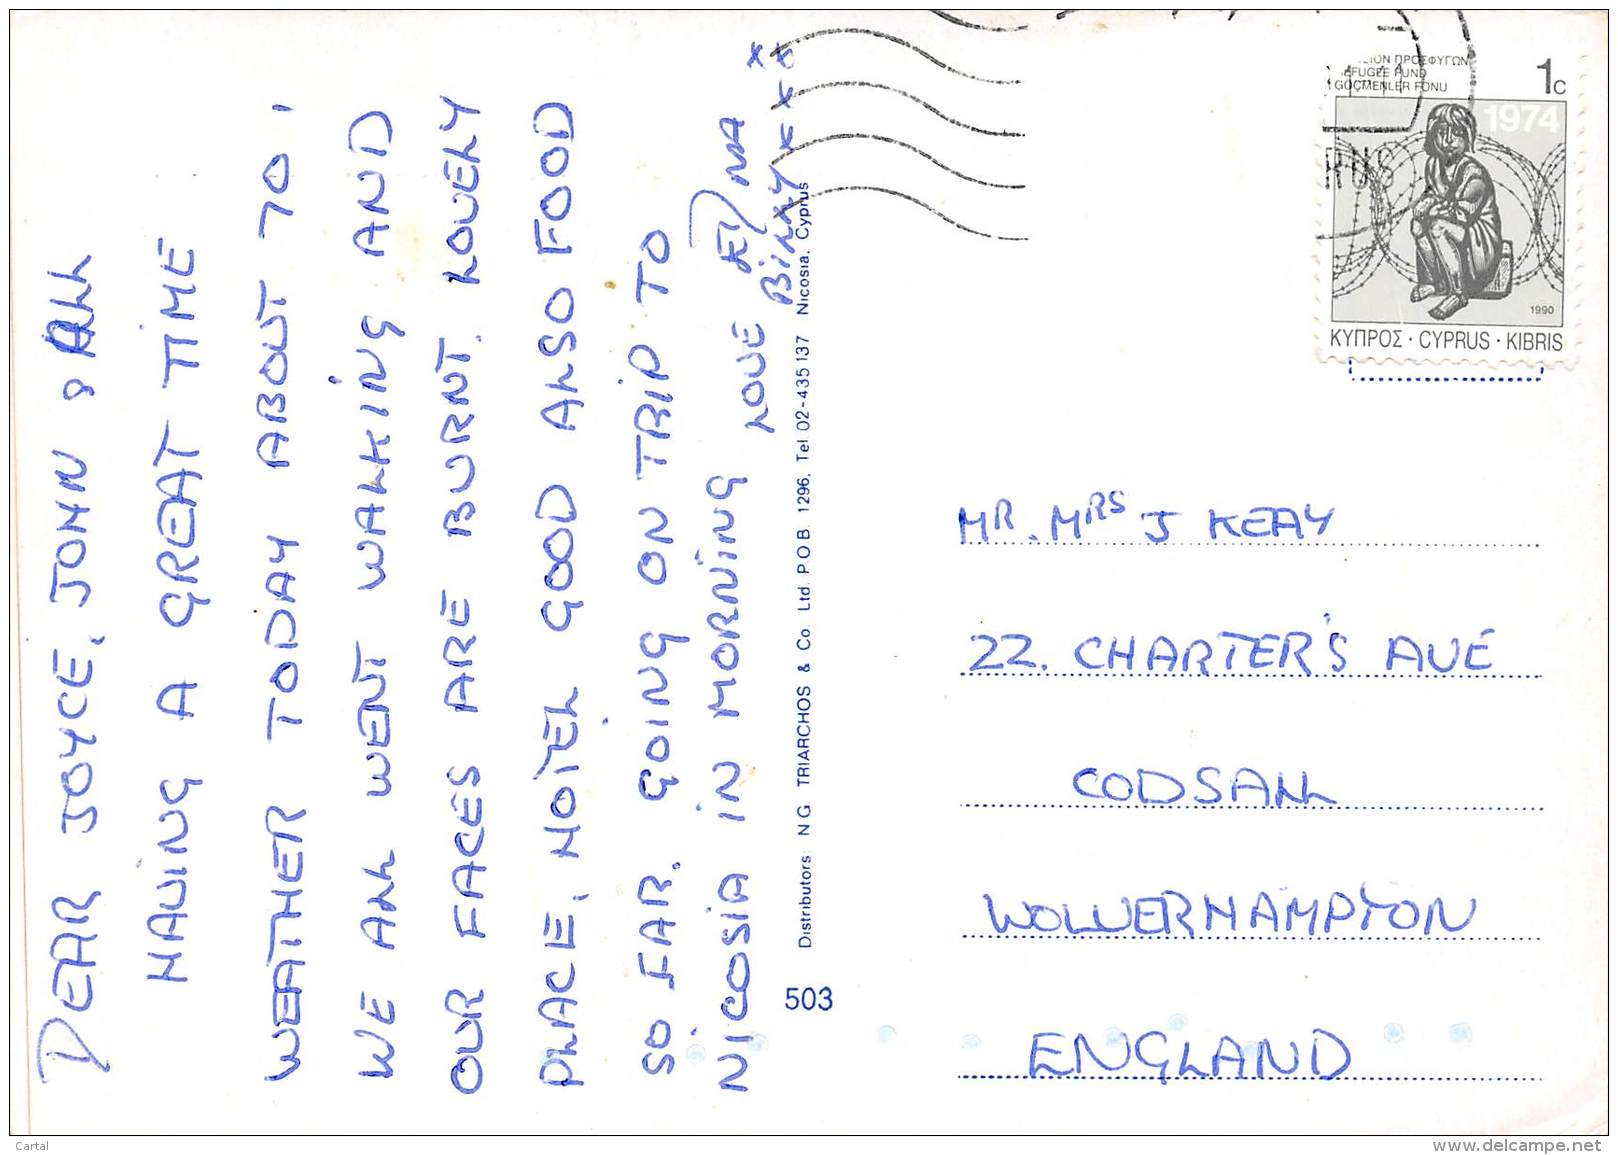 DEAR JOYCE, JOHN & ALL
HAVING A GREAT TIME
WEATHER TODAY ABOUT 70,
WE ALL WENT WALKING AND
OUR FACES ARE BURNT. LOVELY
PLACE, HOTEL GOOD ALSO FOOD
SO FAR. GOING ON TRIP TO
NICOSIA IN MORNING
LOVE
BILLY x x x x
503
Distributors: N G TRIARCHOS & Co. Ltd. P O B 1296, Tel 02-435137 Nicosia, Cyprus
ΠΡΟΣΦΥΓΩΝ
REFUGEE FUND
GÖÇMENLER FONU
1c
1974
1990
ΚΥΠΡΟΣ · CYPRUS · KIBRIS
MR. MRS J KEAY
22. CHARTER'S AVE
CODSALL
WOLVERHAMPTON
ENGLAND
Cartal
www.delcampe.net